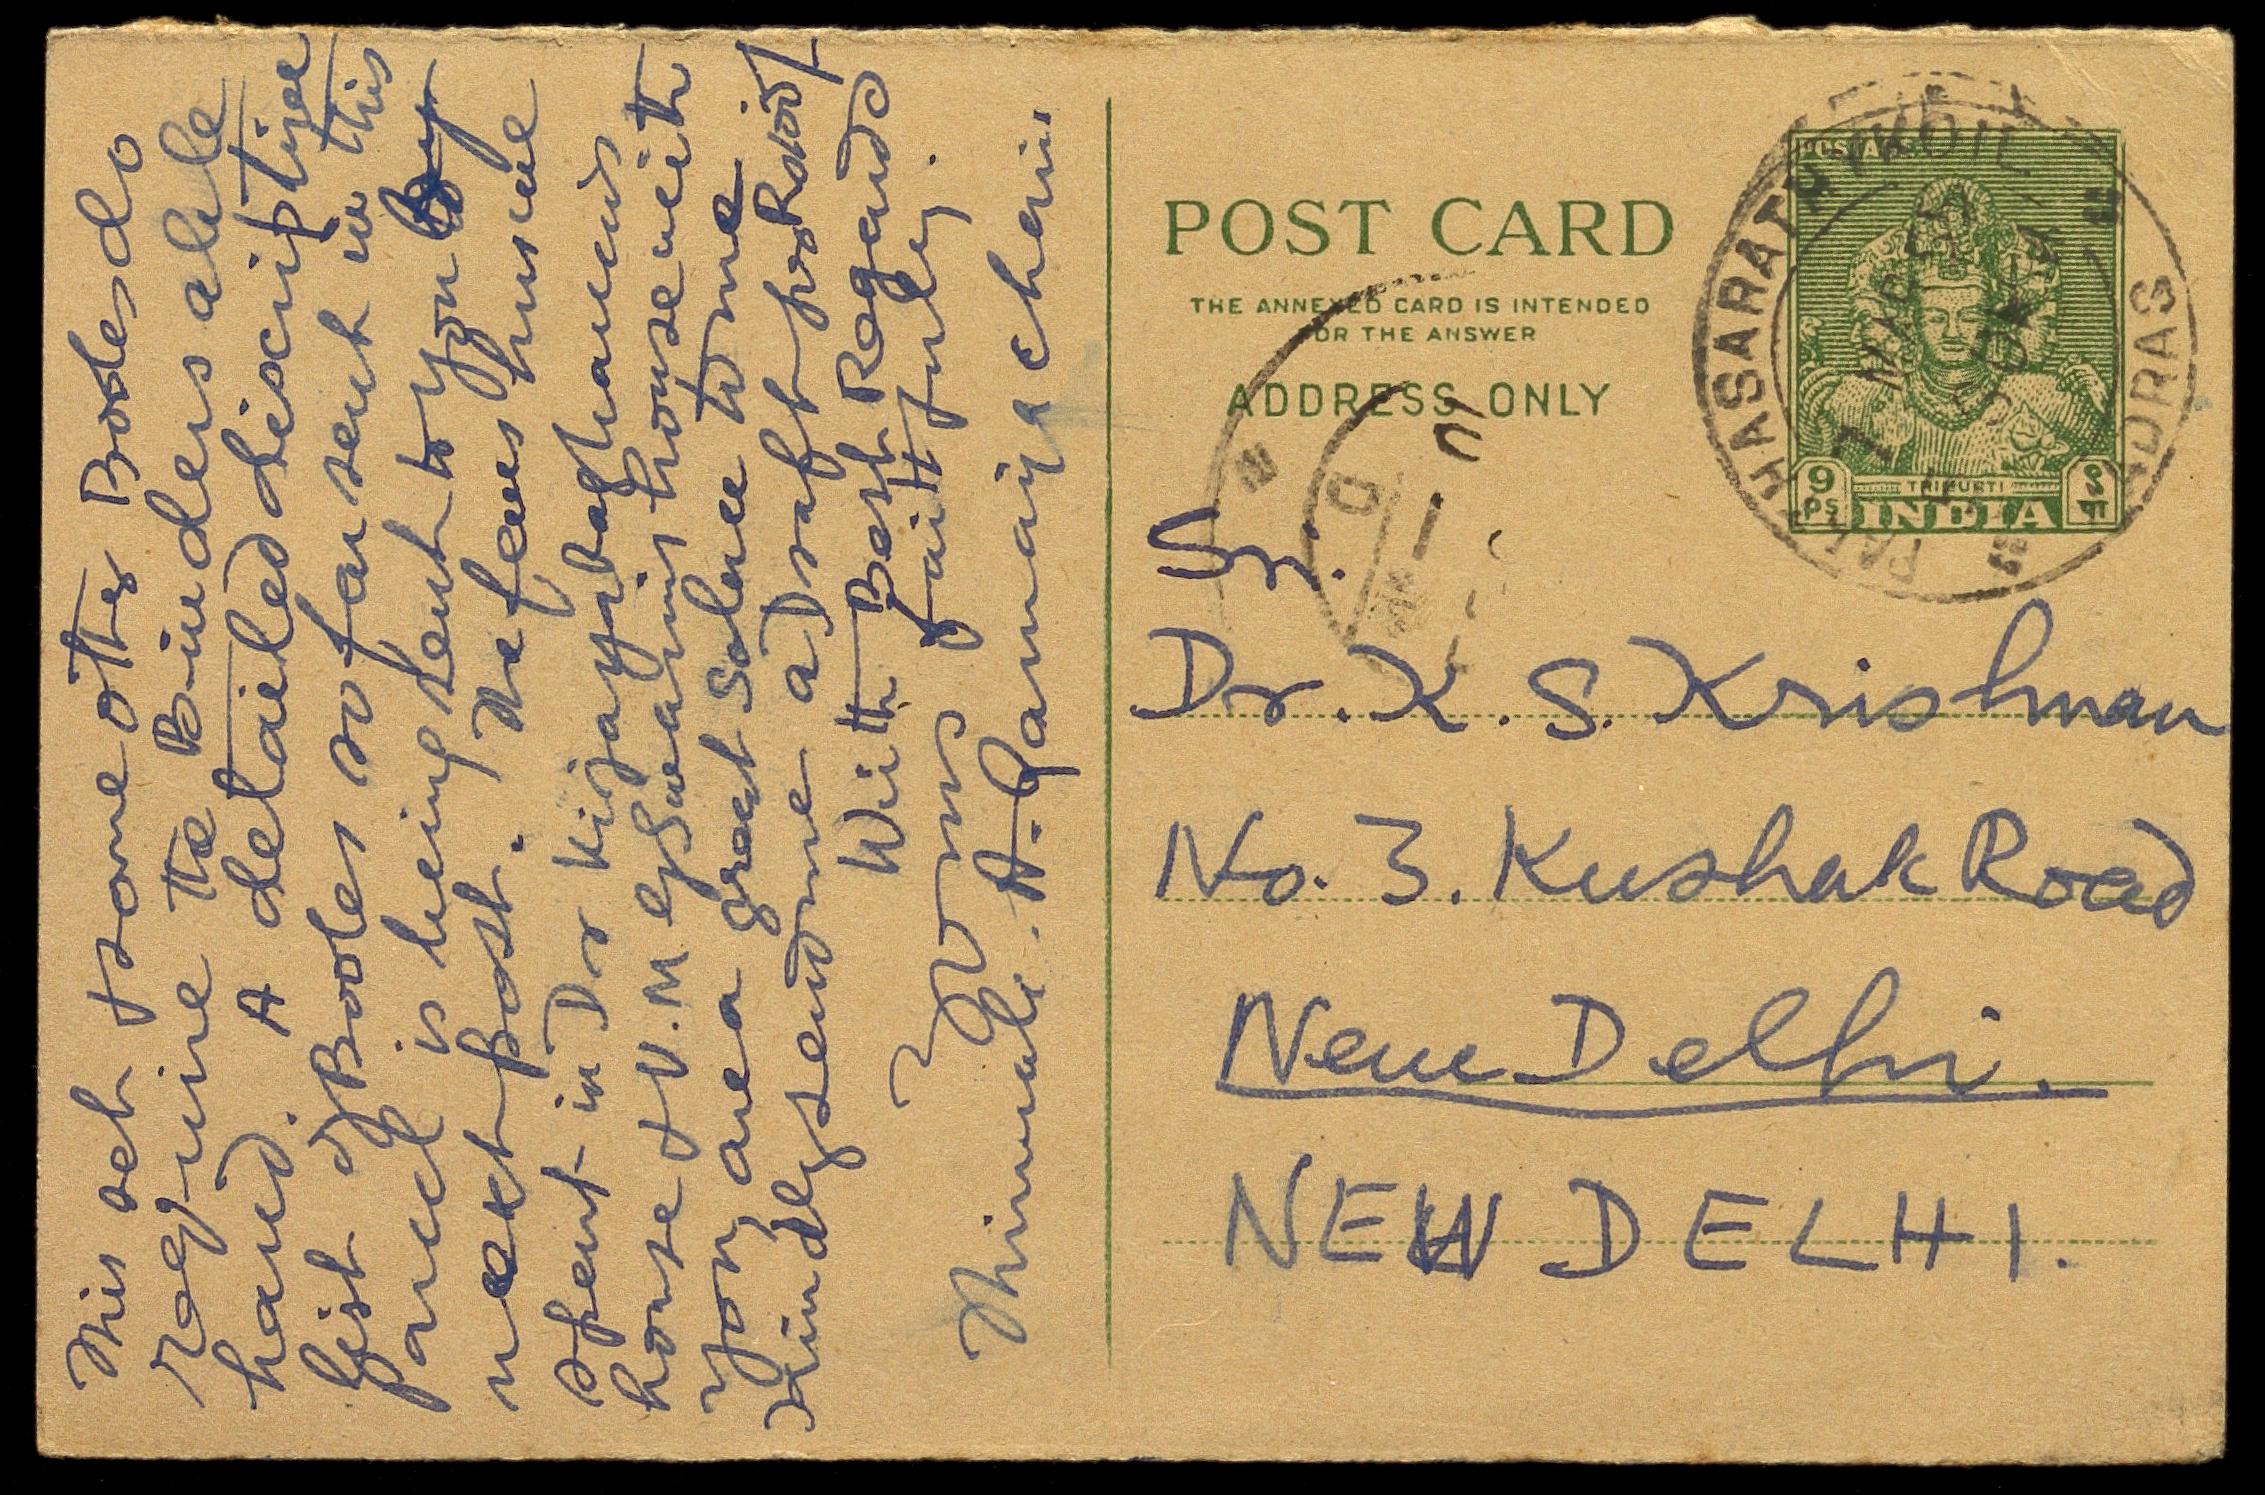 This set & some other Books do
require the Binders able
hand. A detailed discriptive
list of Books so far sent in this
parcel is being sent to you by
next post. The few hours we
spent in Dr Vijayaraghavans
house & V. M. of Swamis house with
you, are a great solace to me
Kindly send me a Draft for Rs 1000/-
With Best Regards
Yours faithfully.
Thirumale. A. Ramaiyachari.
POST CARD
THE ANNEXED CARD IS INTENDED
FOR THE ANSWER
ADDRESS ONLY
POSTAGE
TRIMURTI
9 ps
INDIA
९ पा
PARTHASARATHYKOIL
MADRAS
7 MAR
Dr. K. S. Krishnan
No. 3. Kushak Road
New Delhi.
NEW DELHI.